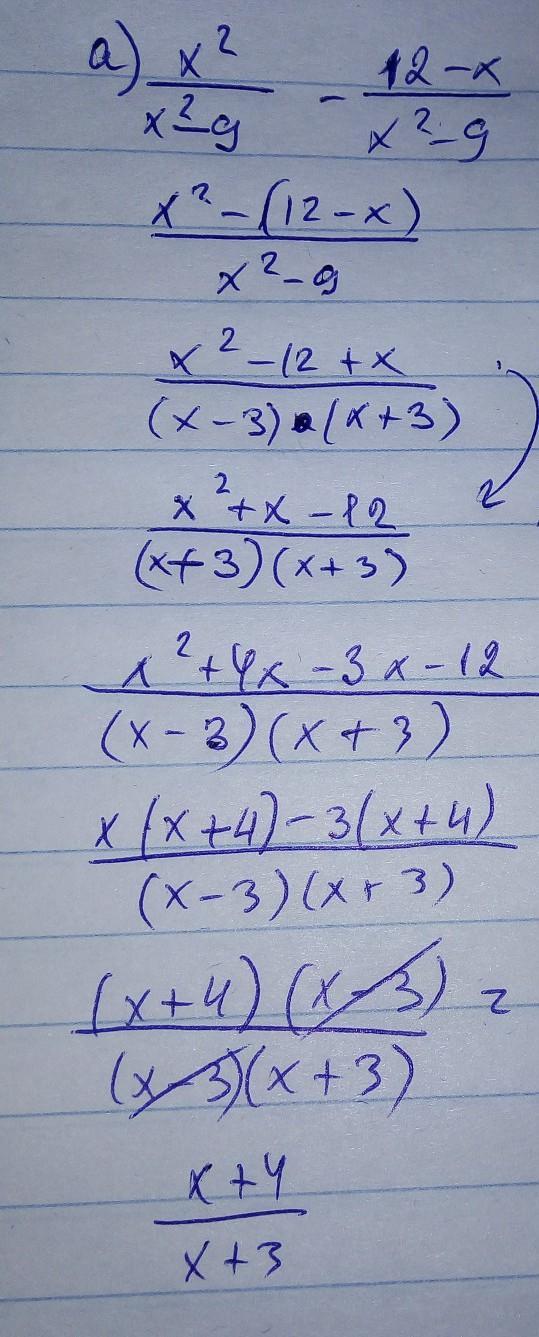 a) x²/(x²-9) - (12-x)/(x²-9)
(x²-(12-x))/(x²-9)
(x²-12+x)/((x-3)·(x+3))
(x²+x-12)/((x+3)(x+3))
(x²+4x-3x-12)/((x-3)(x+3))
(x(x+4)-3(x+4))/((x-3)(x+3))
((x+4)(x-3))/((x-3)(x+3)) =
(x+4)/(x+3)